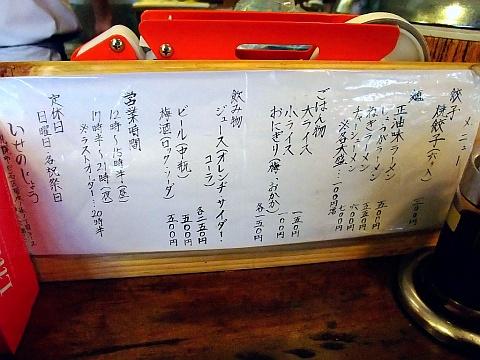 メニュー
餃子
焼餃子(六ヶ入)
麺
正油味ラーメン 五〇〇円
しょうがラーメン 五五〇円
ねぎラーメン 六〇〇円
チャーシューメン 七〇〇円
※各大盛…一〇〇円増
ごはん物
大ライス 一五〇円
小ライス 一〇〇円
おにぎり(梅、おかか) 各一五〇円
飲み物
ジュース(オレンヂ・サイダー・コーラ) 各二五〇円
ビール(中瓶) 五〇〇円
梅酒(ロック・ソーダ) 五〇〇円
営業時間
12時〜15時半(昼)
17時半〜21時(夜)
※ラストオーダー…20時半
定休日
日曜日・各祝祭日
いせのじょう